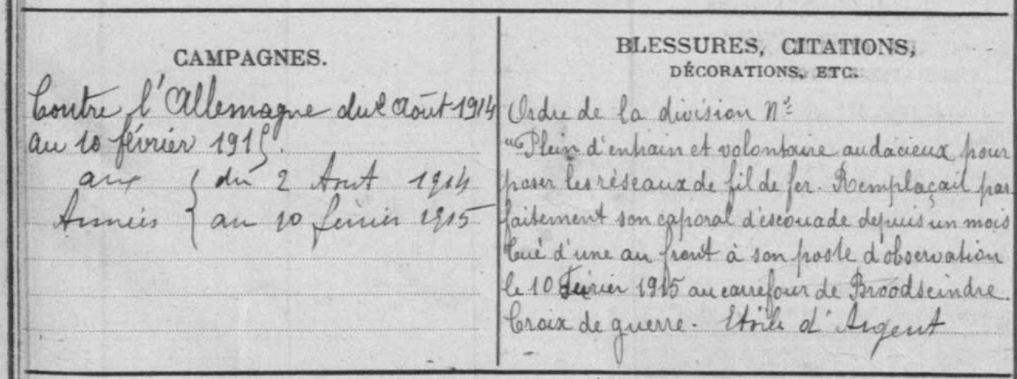 CAMPAGNES.
Contre l'Allemagne du 2 Août 1914
au 10 février 1915.
aux { du 2 Aout 1914
Armées { au 10 février 1915
BLESSURES, CITATIONS,
DÉCORATIONS, ETC.
Ordre de la division N°
"Plein d'entrain et volontaire audacieux pour
poser les réseaux de fil de fer. Remplaçait par
faitement son caporal d'escouade depuis un mois
tué d'une au front à son poste d'observation
le 10 Février 1915 au carrefour de Broodseindre.
Croix de guerre. Etoile d'Argent